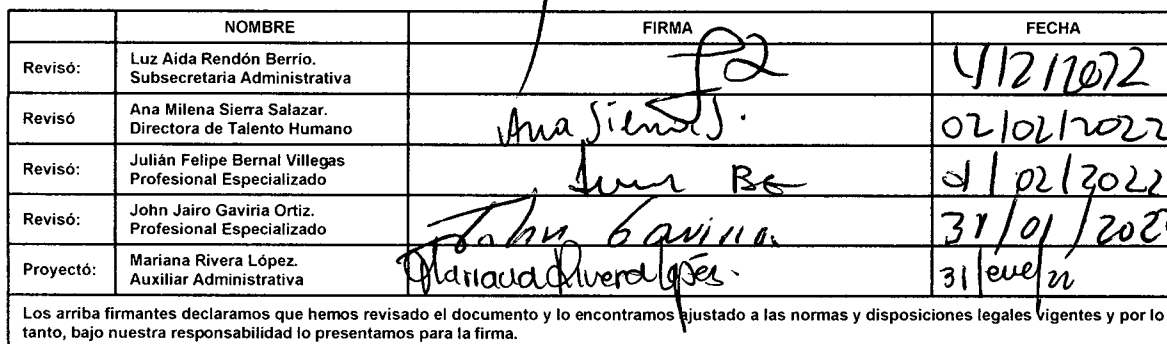 NOMBRE FIRMA FECHA
Revisó: Luz Aida Rendón Berrio.
Subsecretaria Administrativa
4/2/2022
Revisó Ana Milena Sierra Salazar.
Directora de Talento Humano
Ana Sierra S. 02/02/2022
Revisó: Julián Felipe Bernal Villegas
Profesional Especializado
02/2022
Revisó: John Jairo Gaviria Ortiz.
Profesional Especializado
John Gaviria. 31/01/202
Proyectó: Mariana Rivera López.
Auxiliar Administrativa
Mariana Rivera López. 31/ene/22
Los arriba firmantes declaramos que hemos revisado el documento y lo encontramos ajustado a las normas y disposiciones legales vigentes y por lo
tanto, bajo nuestra responsabilidad lo presentamos para la firma.